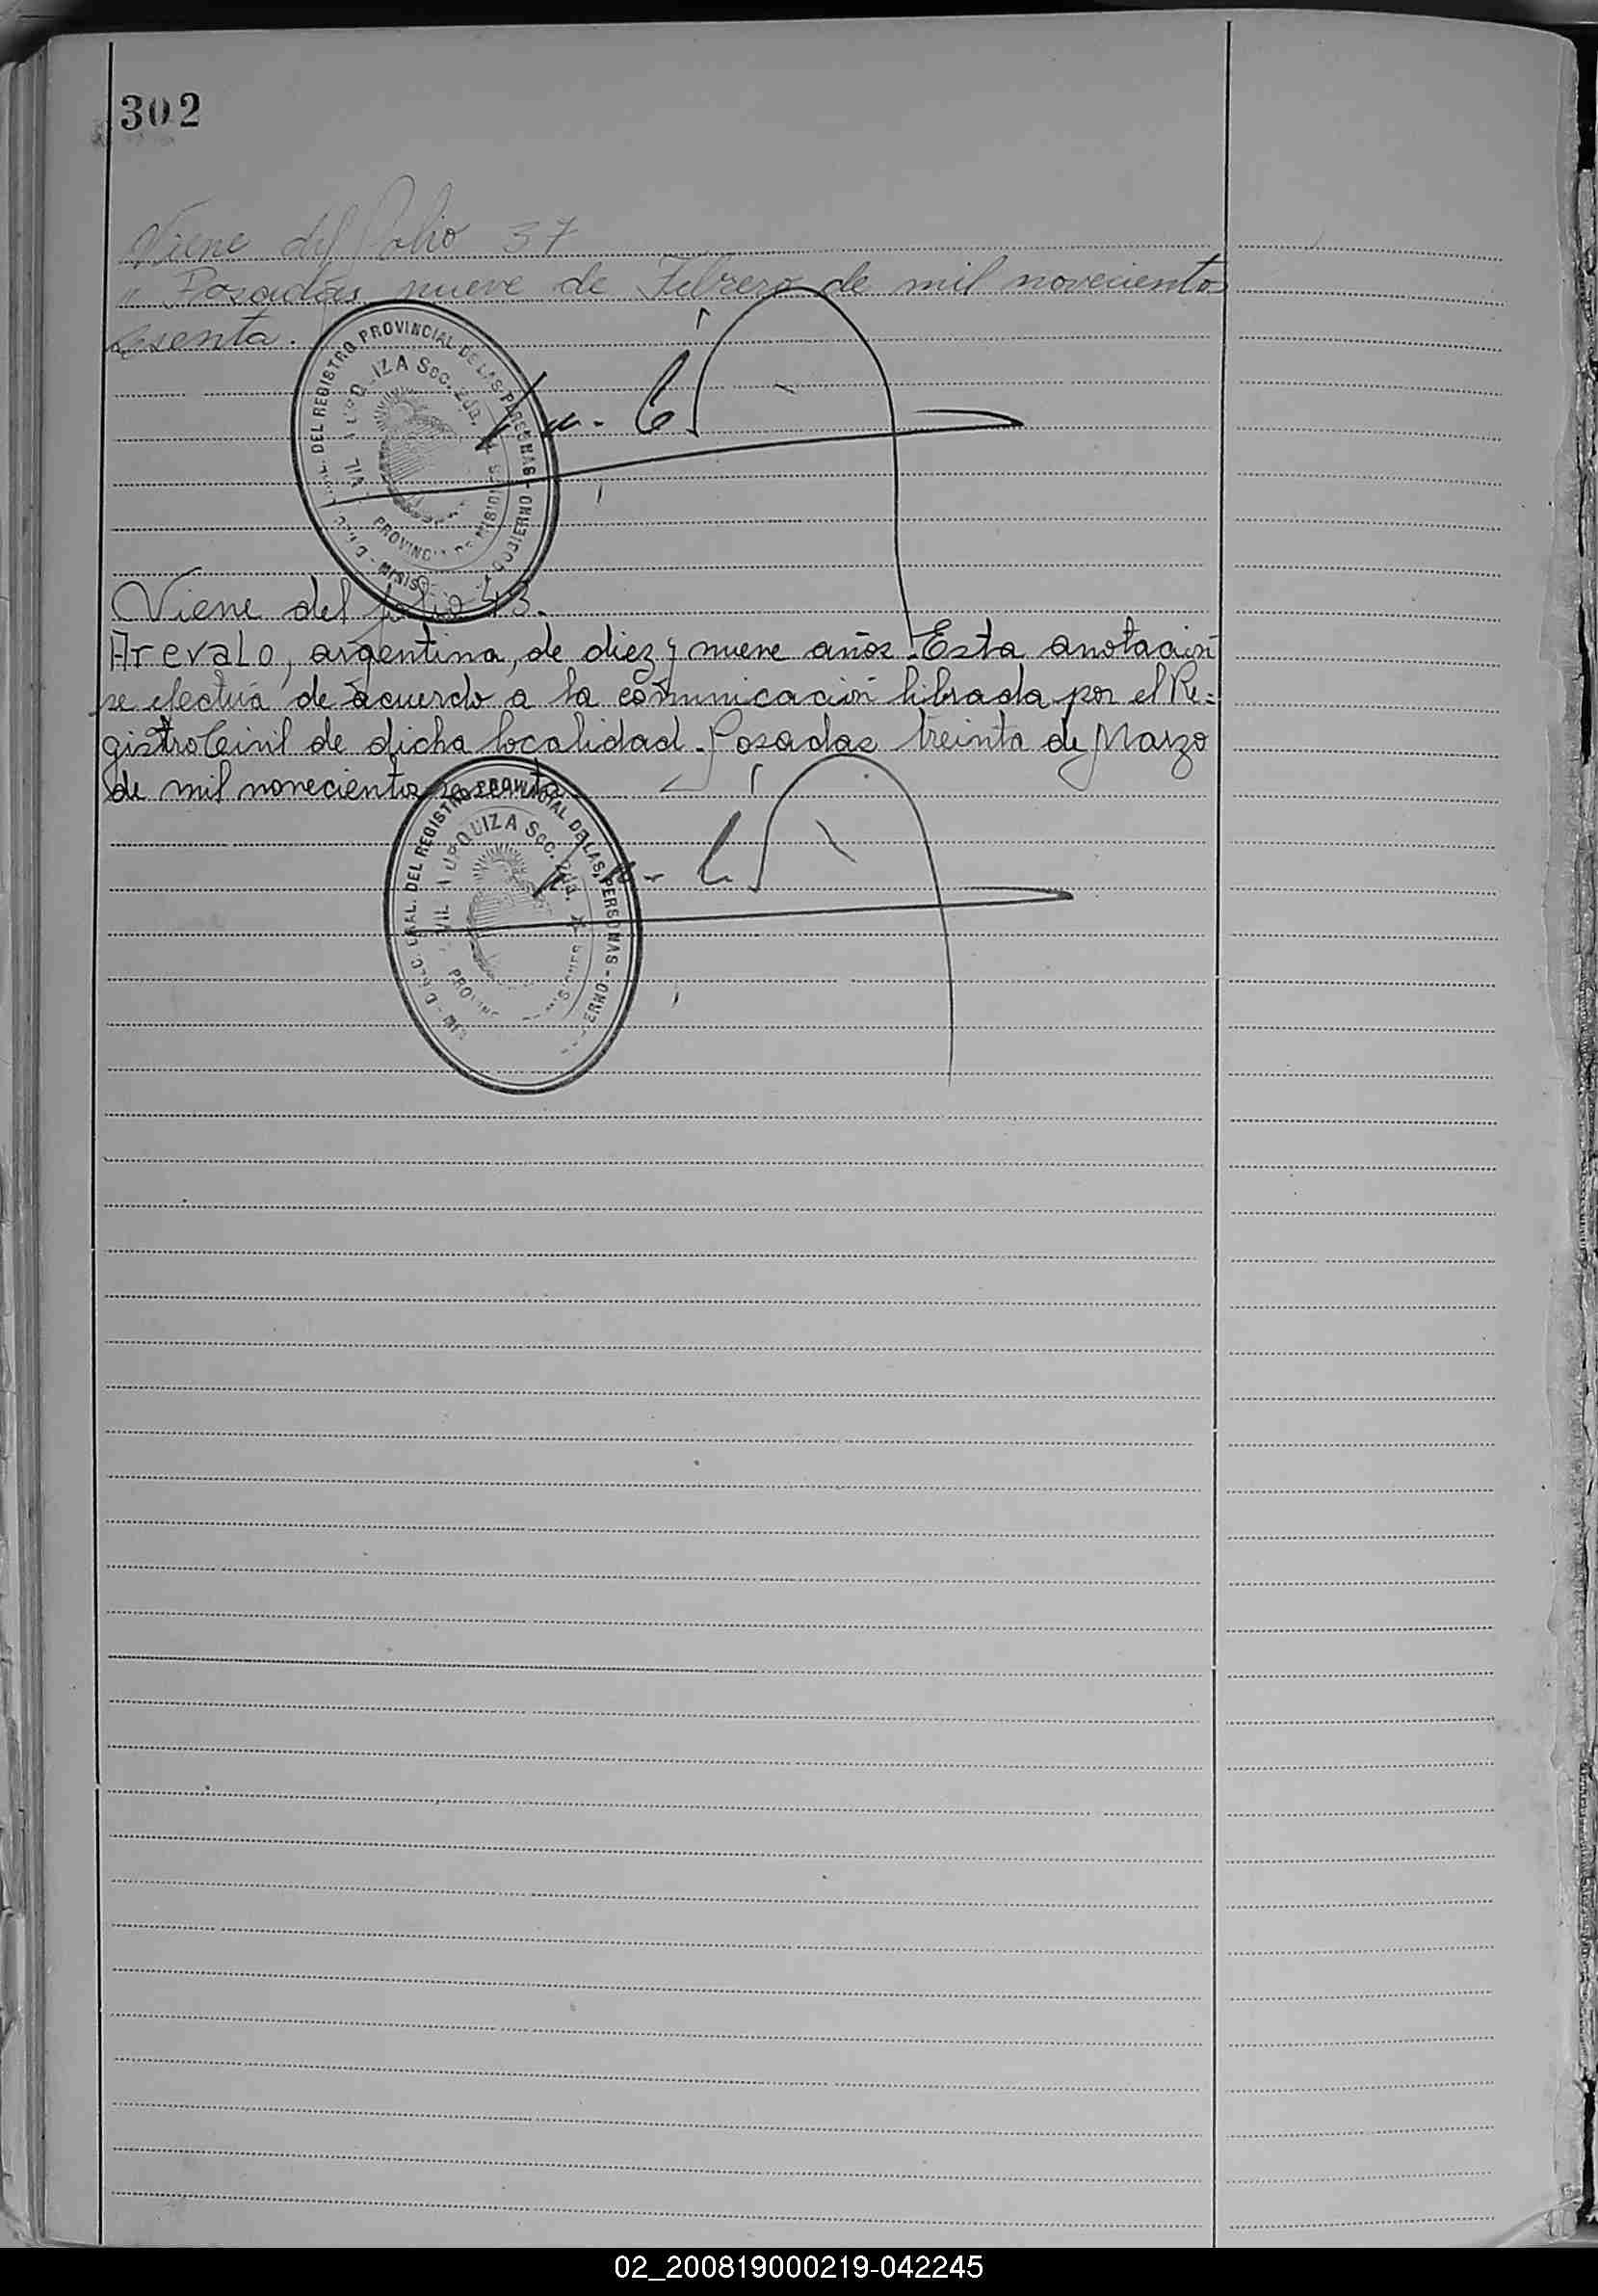 302
Viene del folio 37
" Posadas nueve de Febrero de mil novecientos
sesenta.
DEL REGISTRO PROVINCIAL DE LAS PERSONAS - GOBIERNO
PROVINCIA DE MISIONES
Viene del folio 43.
Arevalo, argentina, de diez y nueve años. Esta anotación
se efectúa de acuerdo a la comunicación librada por el Re=
gistro Civil de dicha localidad. Posadas treinta de Marzo
de mil novecientos sesenta.
DIREC. GRAL. DEL REGISTRO PROVINCIAL DE LAS PERSONAS
URQUIZA Scc. 2da.
02_200819000219-042245